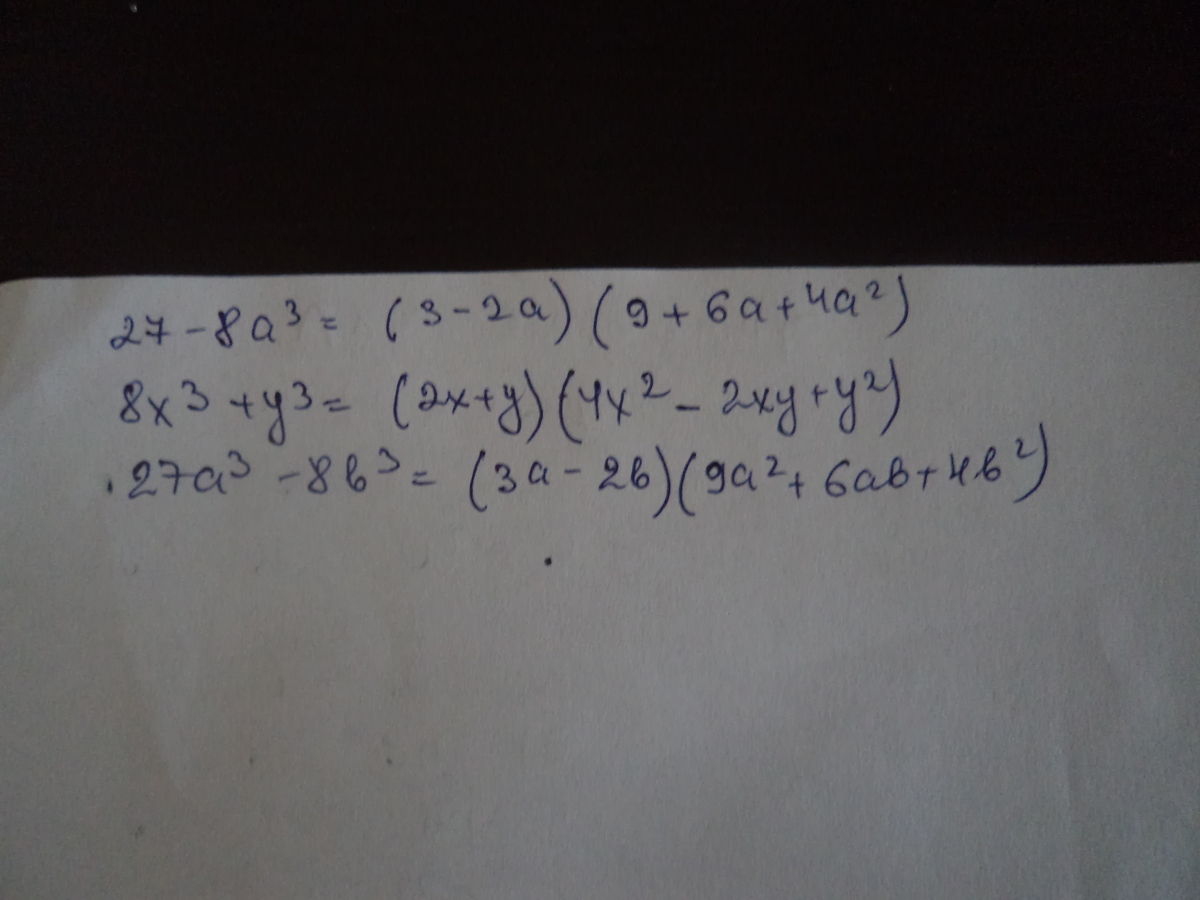 27 - 8a³ = (3 - 2a)(9 + 6a + 4a²)
8x³ + y³ = (2x + y)(4x² - 2xy + y²)
27a³ - 8b³ = (3a - 2b)(9a² + 6ab + 4b²)